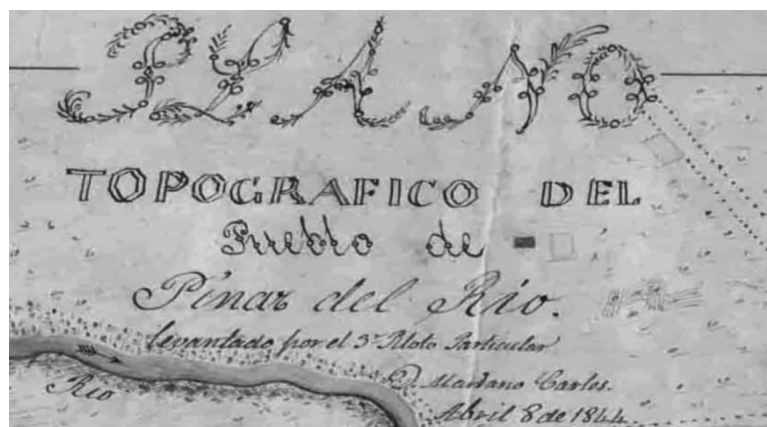 PLANO
TOPOGRAFICO DEL
Pueblo de
Pinar del Rio.
levantado por el 3º Piloto Particular
D. Mariano Carles.
Abril 8 de 1844
Rio